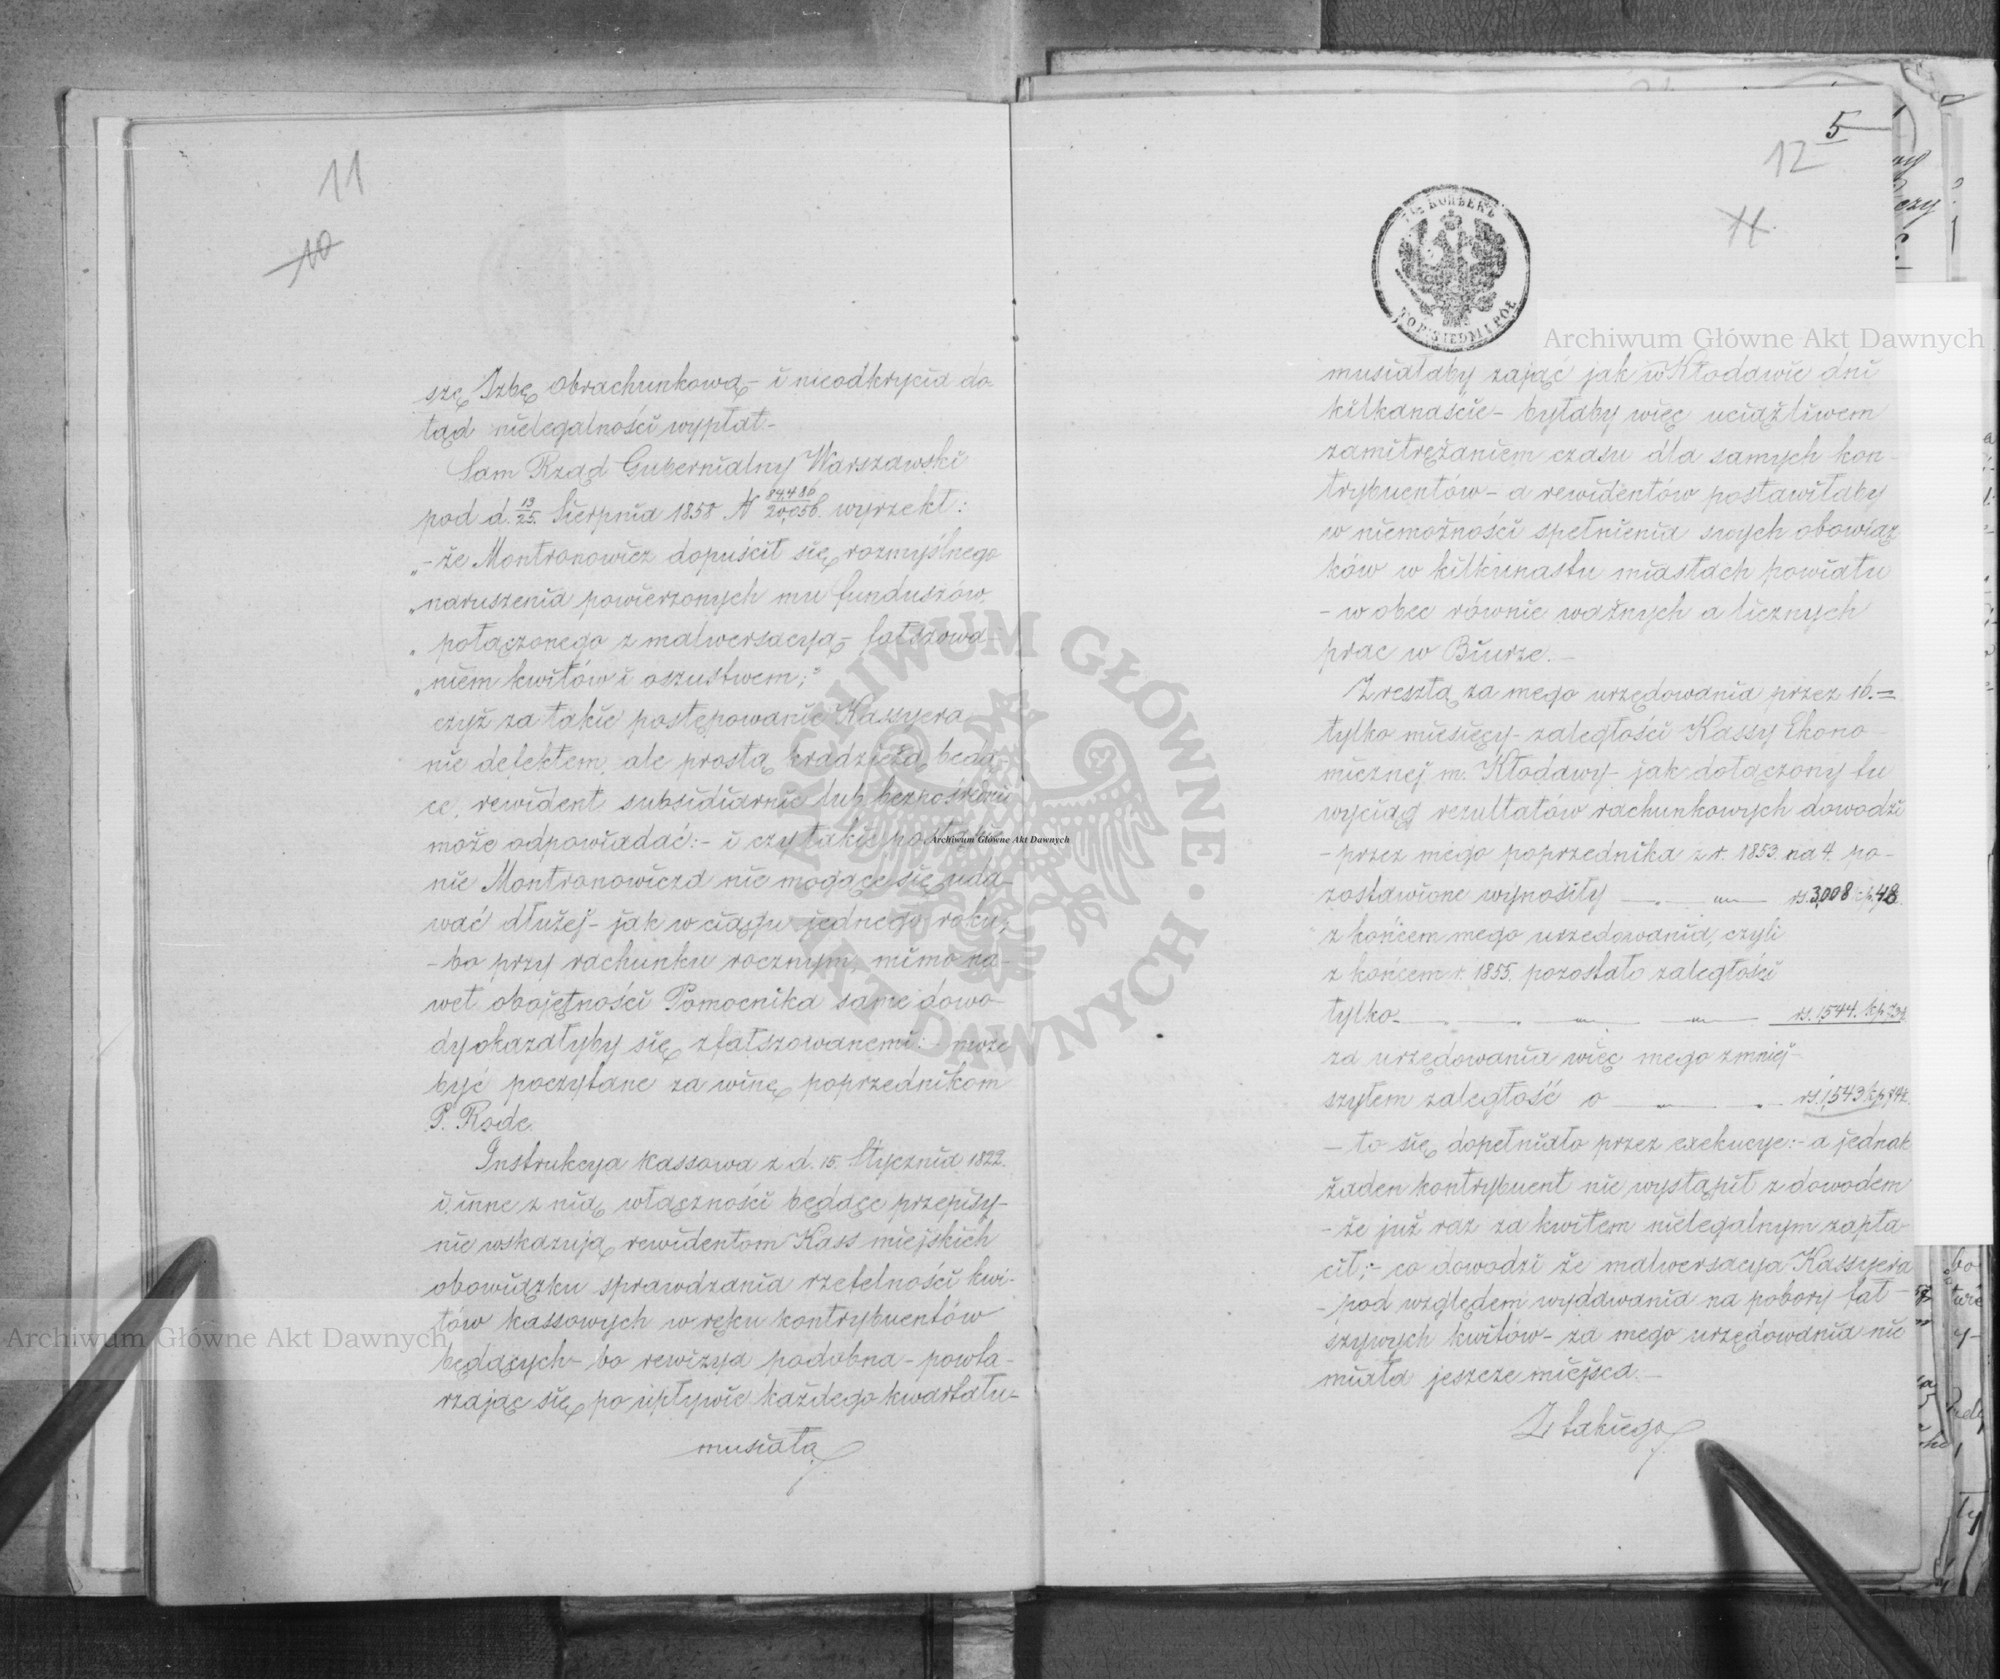 11
10
szę Izbę Obrachunkową - i nieodkrycia do-
tąd nielegalności wypłat. -
Sam Rząd Gubernialny Warszawski
pod d. 13/25. Sierpnia 1858 N 84,480/20,056. wyrzekł:
„- że Montronowicz dopuścił się rozmyślnego
„naruszenia powierzonych mu funduszów,
„połączonego z malwersacyą - fałszowa-
„niem kwitów i oszustwem;"
czyż za takie postępowanie Kassyera
nie defektem, ale prostą kradzieżą będą-
ce, rewident subsidiarnie lub bezpośrednio
może odpowiadać: - i czy takie postąpie-
nie Montronowicza nie mogące się uda-
wać dłużej - jak w ciągu jednego roku;
- bo przy rachunku rocznym, mimo na-
wet obojętności Pomocnika same dowo-
dy okazałyby się zfałszowanemi: - może
być poczytane za winę poprzednikom
P. Rode.
Instrukcya kassowa z d. 15. Stycznia 1822.
i inne z nią włączności będące przepisy -
nie wskazują rewidentom Kass miejskich
obowiązku sprawdzania rzetelności kwi-
tów kassowych w ręku kontrybuentów
będących - bo rewizya podobna - powta-
rzając się po upływie każdego kwartału -
musiała
5
12
11
KOP. SIEDM I PÓŁ
musiałaby zająć jak w Kłodawie dni
kilkanaście - byłaby więc uciążliwem
zamitrężaniem czasu dla samych kon-
trybuentów - a rewidentów postawiłaby
w niemożności spełnienia swych obowiąz-
ków w kilkunastu miastach powiatu
- w obec równie ważnych a licznych
prac w Biurze. -
Zresztą za mego urzędowania przez 16. -
tylko miesięcy - zaległości Kassy Ekono-
micznej m. Kłodawy - jak dołączony tu
wyciąg rezultatów rachunkowych dowodzi
- przez mego poprzednika z r. 1853. na 4. po-
zostawione wynosiły rs. 3,008 kp. 48
z końcem mego urzędowania, czyli
z końcem r. 1855. pozostało zaległości
tylko rs. 1,544. kp.
za urzędowania więc mego zmniej-
szyłem zaległość o rs. 1,543 kp.
- to się dopełniało przez exekucye: - a jednak
żaden kontrybuent nie wystąpił z dowodem
- że już raz za kwitem nielegalnym zapła-
cił; - co dowodzi że malwersacya Kassyera
- pod względem wydawania na pobory fał-
szywych kwitów - za mego urzędowania nie
miała jeszcze miejsca. -
Z takiego
Archiwum Główne Akt Dawnych
Archiwum Główne Akt Dawnych
Archiwum Główne Akt Dawnych
ARCHIWUM GŁÓWNE AKT DAWNYCH